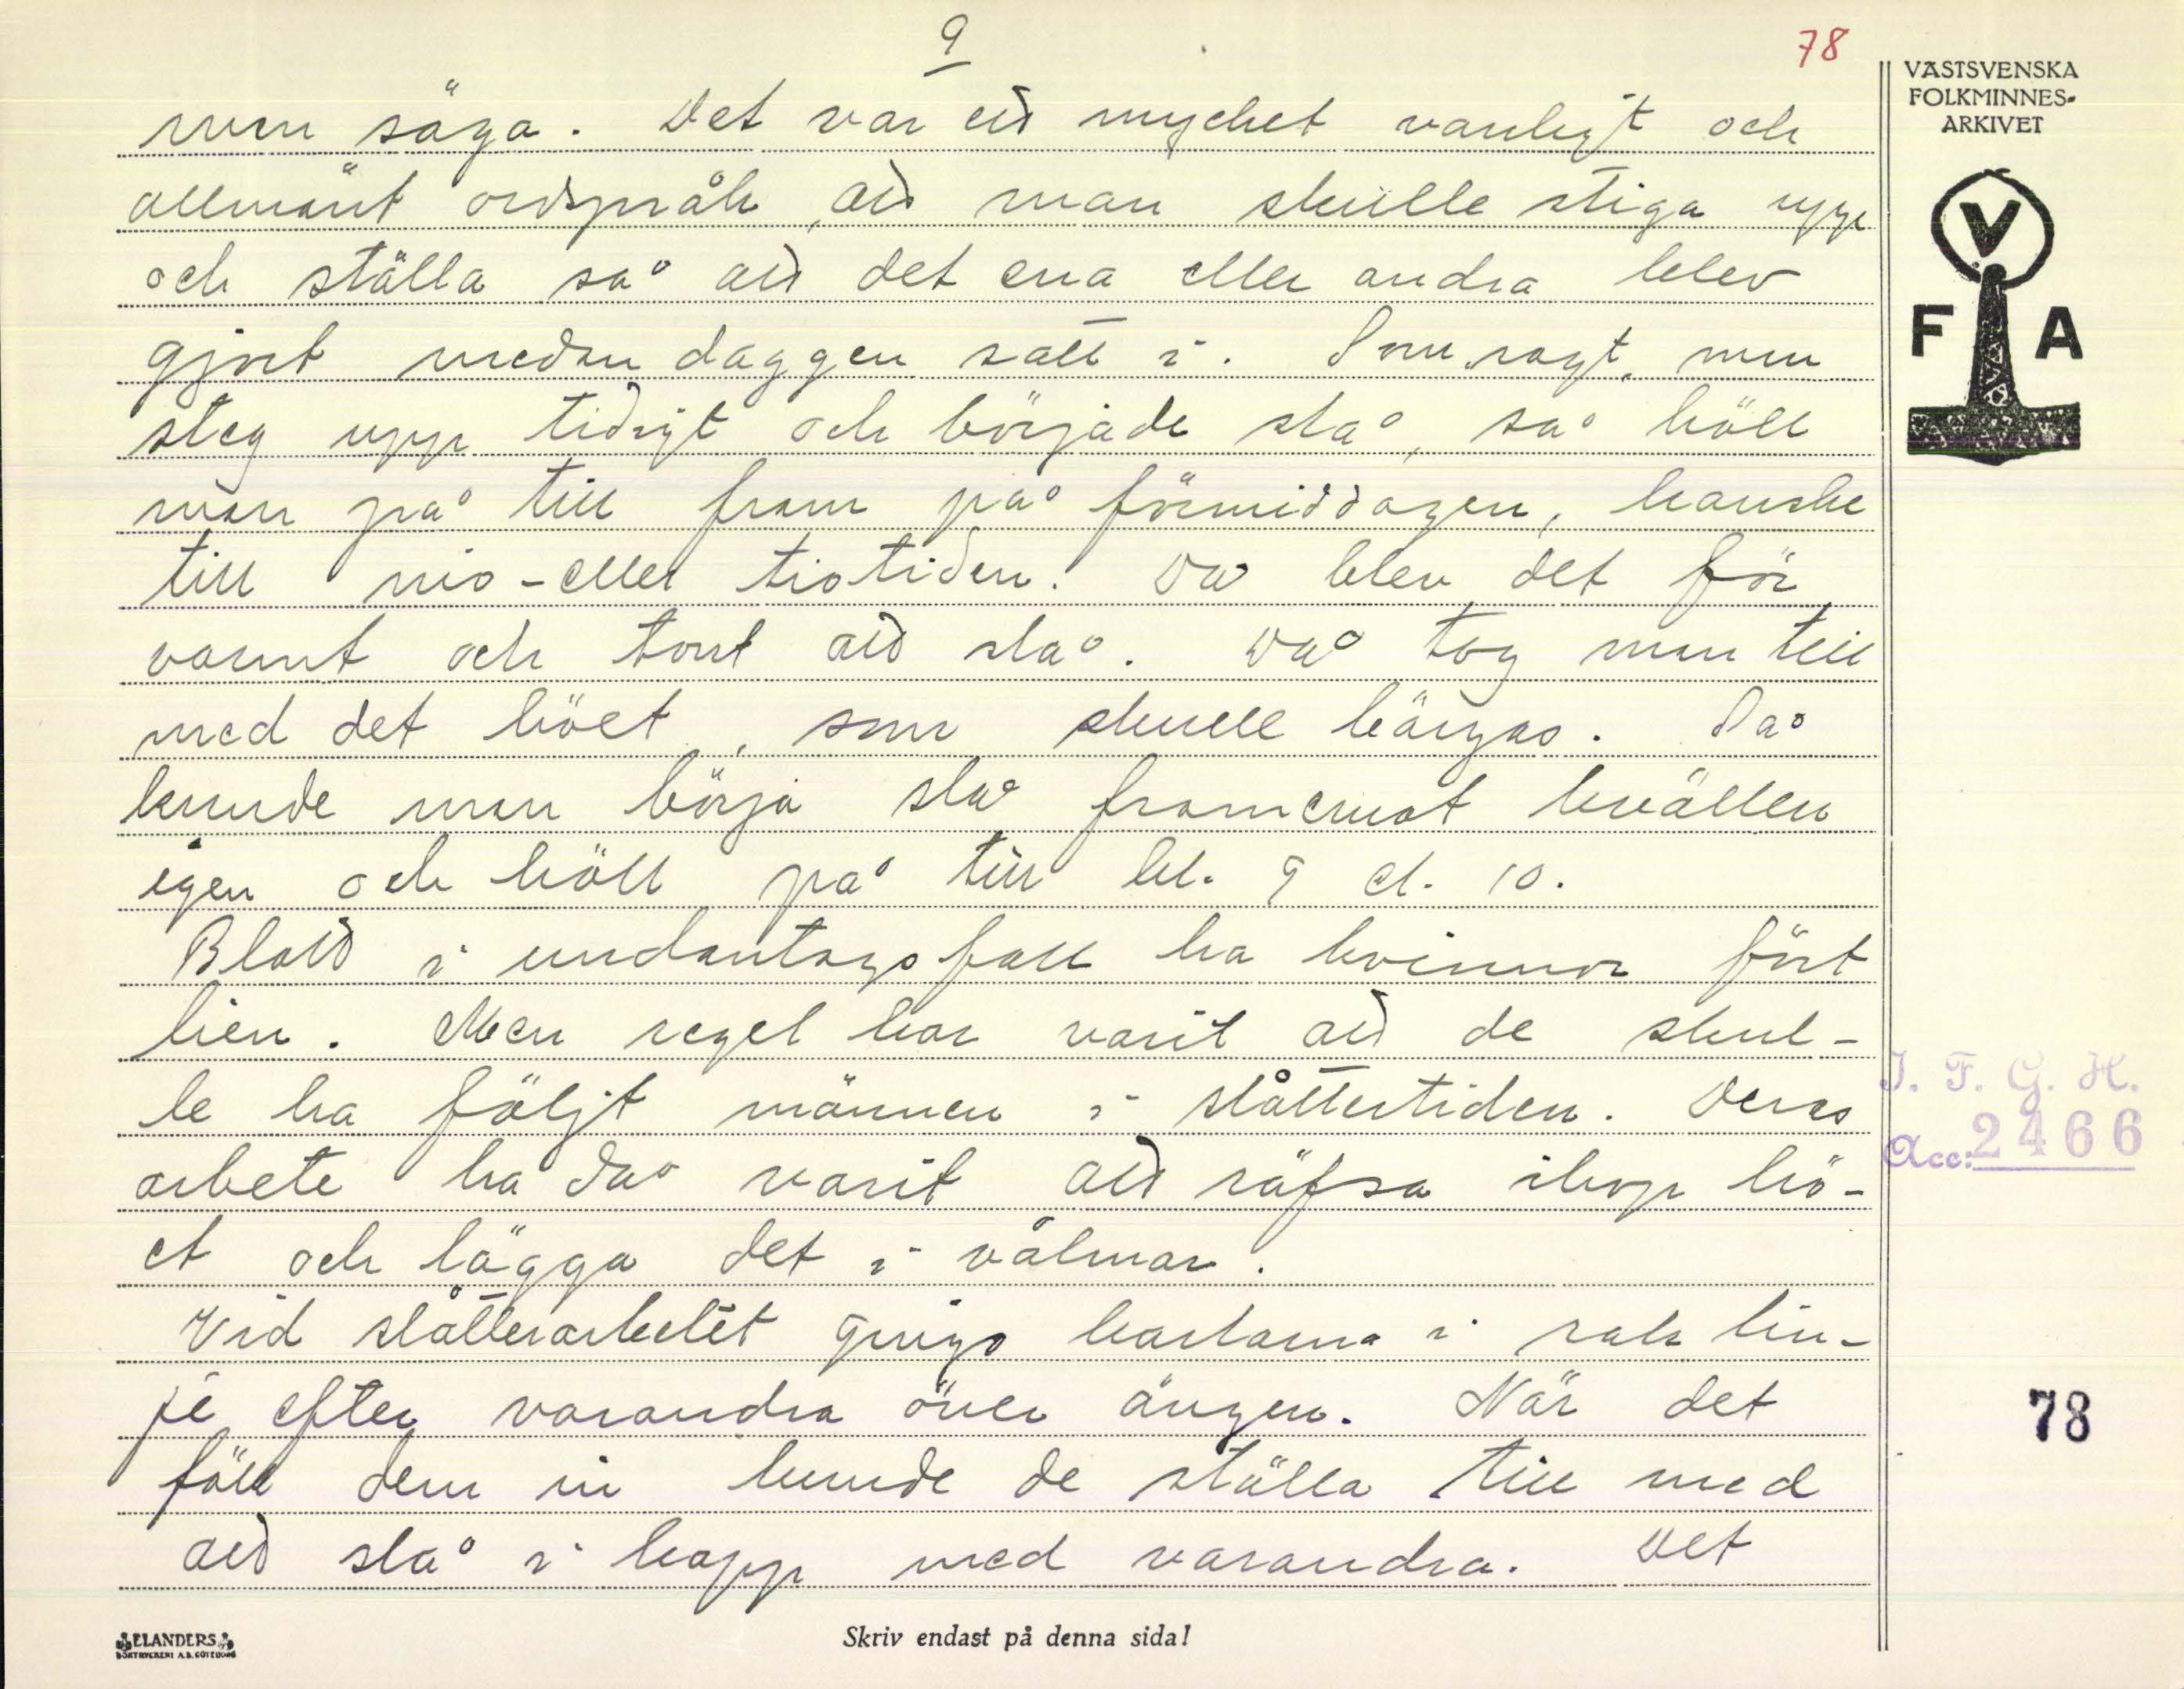 9
78
man säga. Det var ett mycket vanligt och
allmänt ordspråk, att man skulle stiga upp
och ställa så att det ena eller andra blev
gjort medan daggen satt i. Som sagt, man
steg upp tidigt och började slå, så höll
man på till fram på förmiddagen, kanske
till nio-eller tiotiden. Då blev det för
varmt och tort att slå. Då tog man till
med det höet, som skulle bärgas. Så
kunde man börja slå framemot kvällen
igen och höll på till kl. 9 el. 10.
Blott i undantagsfall ha kvinnor fört
lien. Men regel har varit att de skul-
le ha följt männen i slåttertiden. Deras
arbete ha då varit att räfsa ihop hö-
et och lägga det i vålmar.
Vid slåtterarbetet gingo karlarna i rak lin-
je efter varandra över ängen. När det
föll dem in kunde de ställa till med
att slå i kapp med varandra. Det
VÄSTSVENSKA
FOLKMINNES-
ARKIVET
V
F A
I. F. G. H.
Acc: 2466
78
ELANDERS
BOKTRYCKERI A.B. GÖTEBORG
Skriv endast på denna sida!